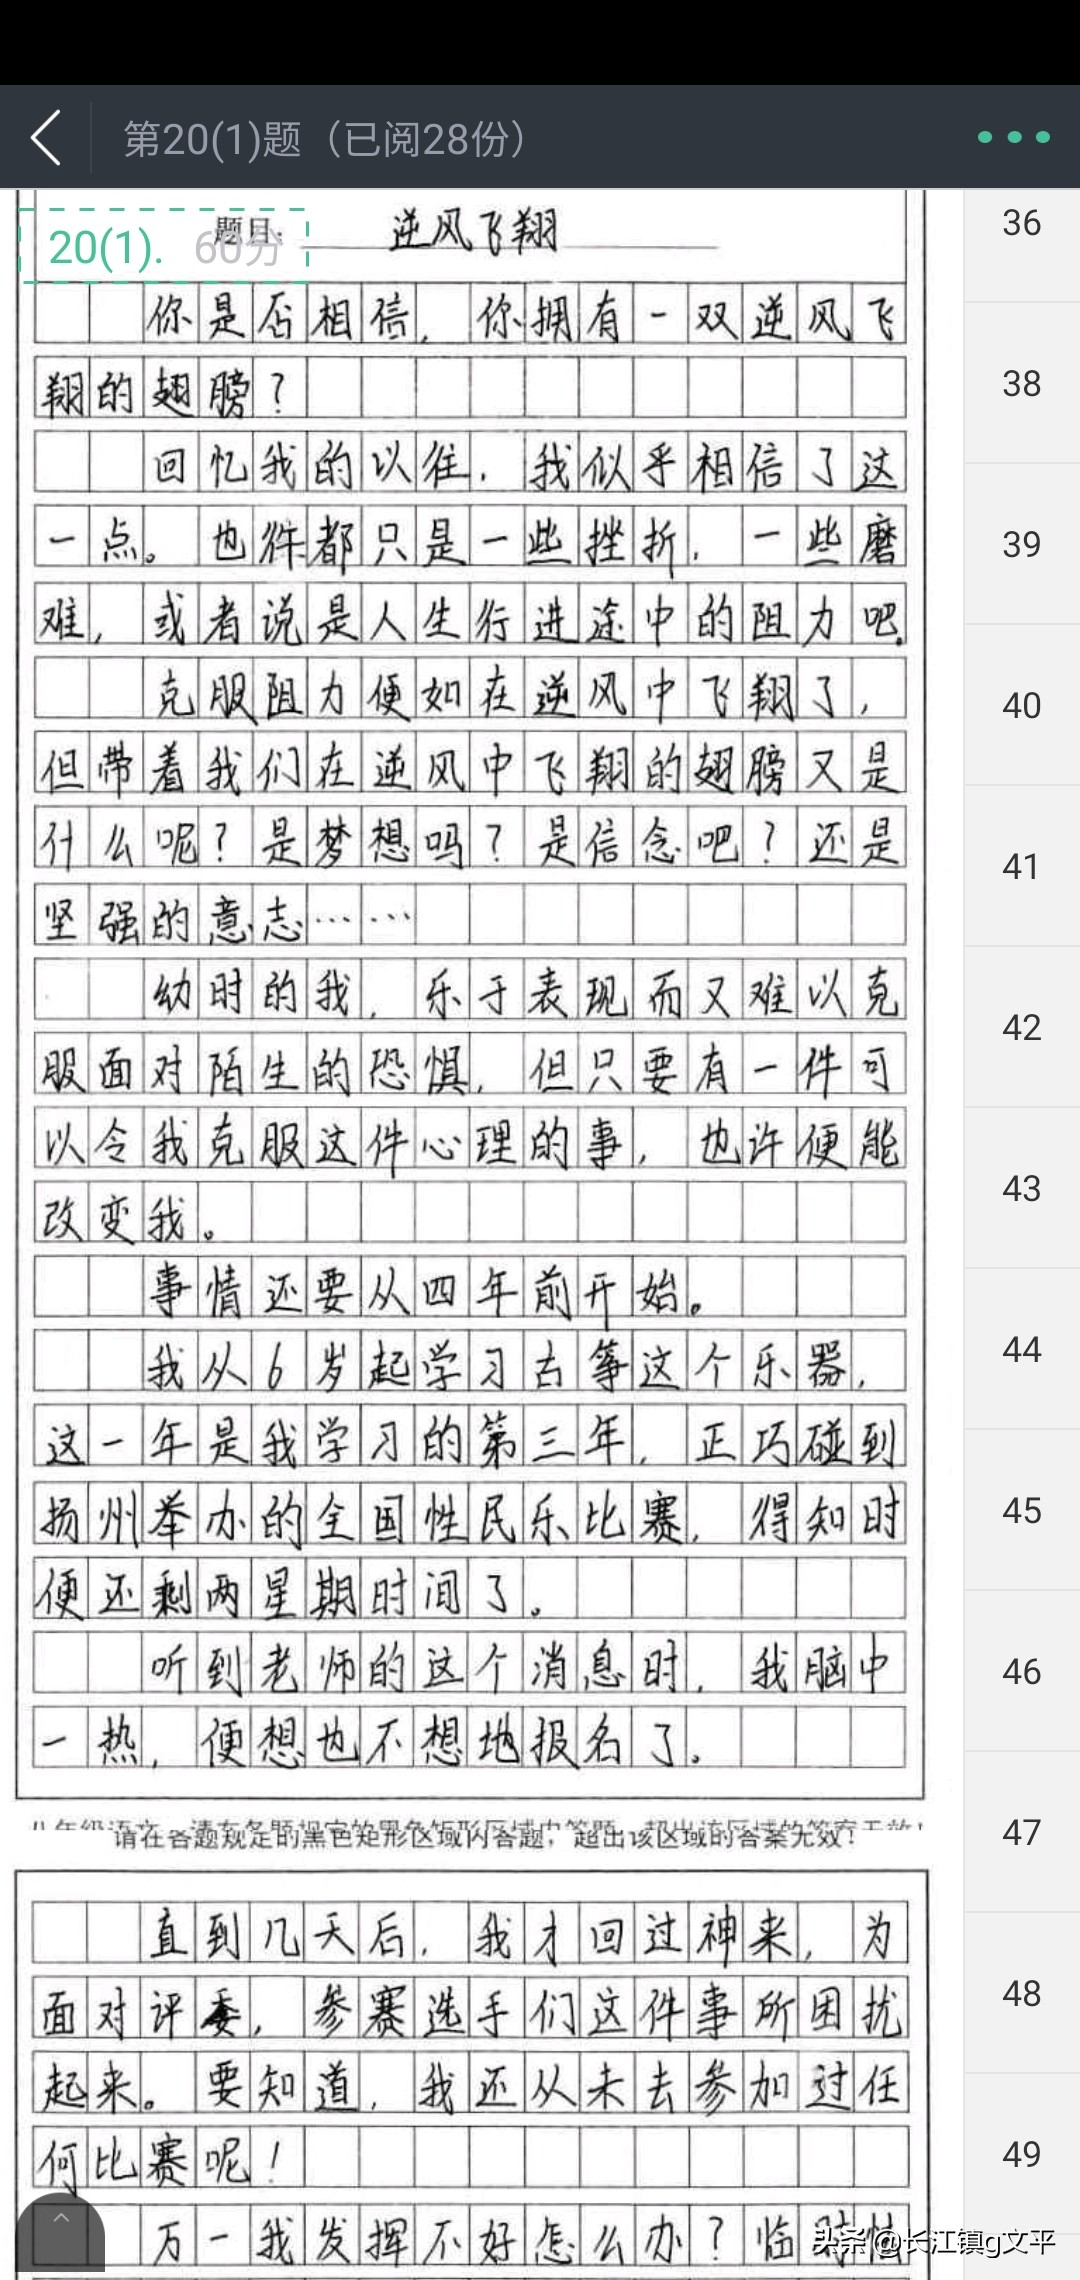 第20(1)题（已阅28份）
20(1). 60分
题目: 逆风飞翔
你是否相信，你拥有一双逆风飞
翔的翅膀？
回忆我的以往，我似乎相信了这
一点。也许都只是一些挫折，一些磨
难，或者说是人生行进途中的阻力吧.
克服阻力便如在逆风中飞翔了，
但带着我们在逆风中飞翔的翅膀又是
什么呢？是梦想吗？是信念吧？还是
坚强的意志……
幼时的我，乐于表现而又难以克
服面对陌生的恐惧，但只要有一件可
以令我克服这件心理的事，也许便能
改变我。
事情还要从四年前开始。
我从6岁起学习古筝这个乐器，
这一年是我学习的第三年，正巧碰到
扬州举办的全国性民乐比赛，得知时
便还剩两星期时间了。
听到老师的这个消息时，我脑中
一热，便想也不想地报名了。
请在各题规定的黑色矩形区域内答题，超出该区域的答案无效！
直到几天后，我才回过神来，为
面对评委，参赛选手们这件事所困扰
起来。要知道，我还从未去参加过任
何比赛呢！
万一我发挥不好怎么办？临时怯
36
38
39
40
41
42
43
44
45
46
47
48
49
头条 @长江镇g文平